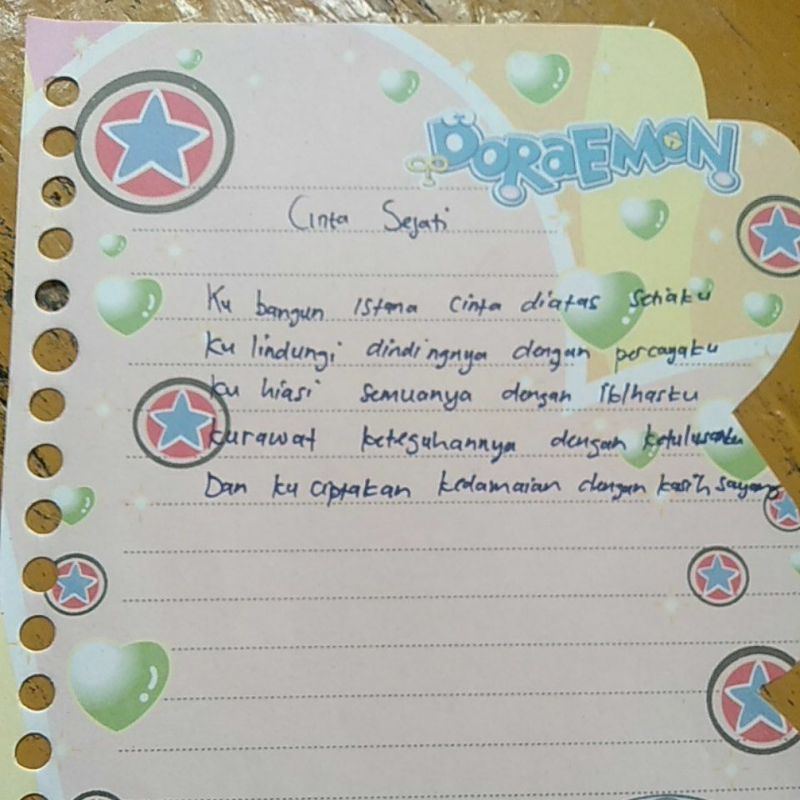 DORAEMON
Cinta Sejati
Ku bangun istana cinta diatas setiaku
Ku lindungi dindingnya dengan percayaku
Ku hiasi semuanya dengan Ikhlasku
kurawat keteguhannya dengan ketulusanku
Dan ku ciptakan kedamaian dengan kasih sayang